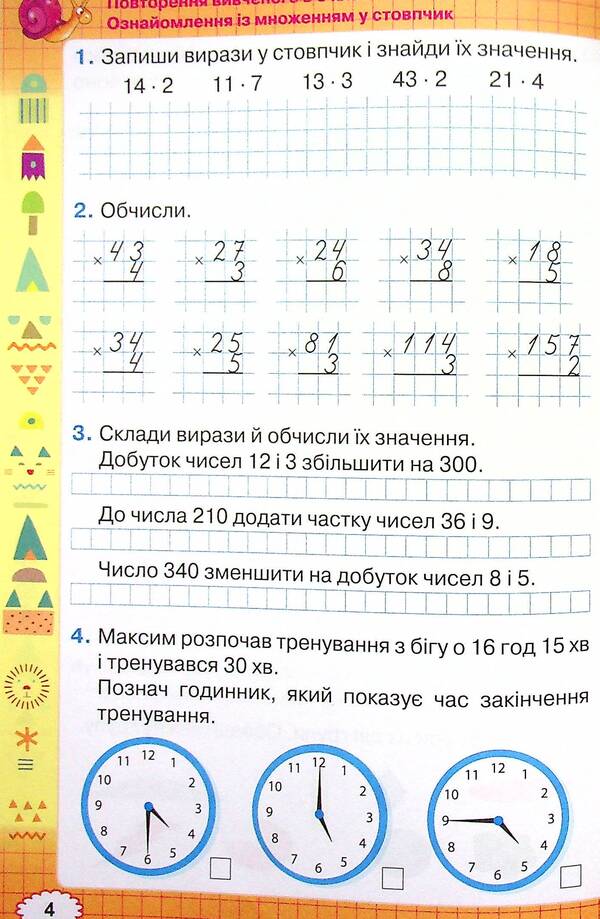 Повторення вивченого в
Ознайомлення із множенням у стовпчик
1. Запиши вирази у стовпчик і знайди їх значення.
14 · 2 11 · 7 13 · 3 43 · 2 21 · 4
2. Обчисли.
× 43 × 27 × 24 × 34 × 18
4 3 6 8 5
× 34 × 25 × 81 × 114 × 157
4 5 3 3 2
3. Склади вирази й обчисли їх значення.
Добуток чисел 12 і 3 збільшити на 300.
До числа 210 додати частку чисел 36 і 9.
Число 340 зменшити на добуток чисел 8 і 5.
4. Максим розпочав тренування з бігу о 16 год 15 хв
і тренувався 30 хв.
Познач годинник, який показує час закінчення
тренування.
12 1 2 3 4 5 6 7 8 9 10 11
12 1 2 3 4 5 6 7 8 9 10 11
12 1 2 3 4 5 6 7 8 9 10 11
4